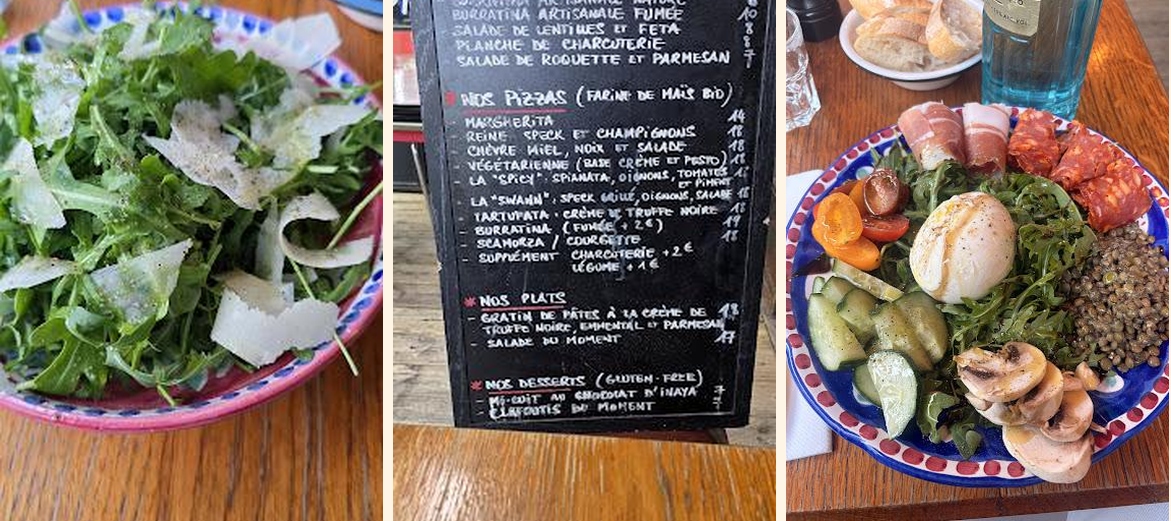 BURRATINA ARTISANALE NATURE 8
BURRATINA ARTISANALE FUMÉE 10
SALADE DE LENTILLES ET FETA 8
PLANCHE DE CHARCUTERIE 8
SALADE DE ROQUETTE ET PARMESAN 7
NOS PIZZAS (FARINE DE MAÏS BIO)
MARGHERITA 14
- REINE SPECK ET CHAMPIGNONS 18
- CHÈVRE MIEL, NOIX ET SALADE 18
- VÉGÉTARIENNE (BASE CRÈME ET PESTO) 18
- LA "SPICY": SPIANATA, OIGNONS, TOMATES ET PIMENT 18
LA "SWANN": SPECK GRILLÉ, OIGNONS, SALADE 18
- TARTUFATA - CRÈME DE TRUFFE NOIRE 18
- BURRATINA (FUMÉE + 2€) 19
- SCAMORZA / COURGETTE 18
- SUPPLÉMENT CHARCUTERIE +2€
LÉGUME +1€
* NOS PLATS
- GRATIN DE PÂTES À LA CRÈME DE 18
TRUFFE NOIRE, EMMENTAL ET PARMESAN
- SALADE DU MOMENT 17
* NOS DESSERTS (GLUTEN-FREE)
- MI-CUIT AU CHOCOLAT D'INAYA 7
- CLAFOUTIS DU MOMENT 7